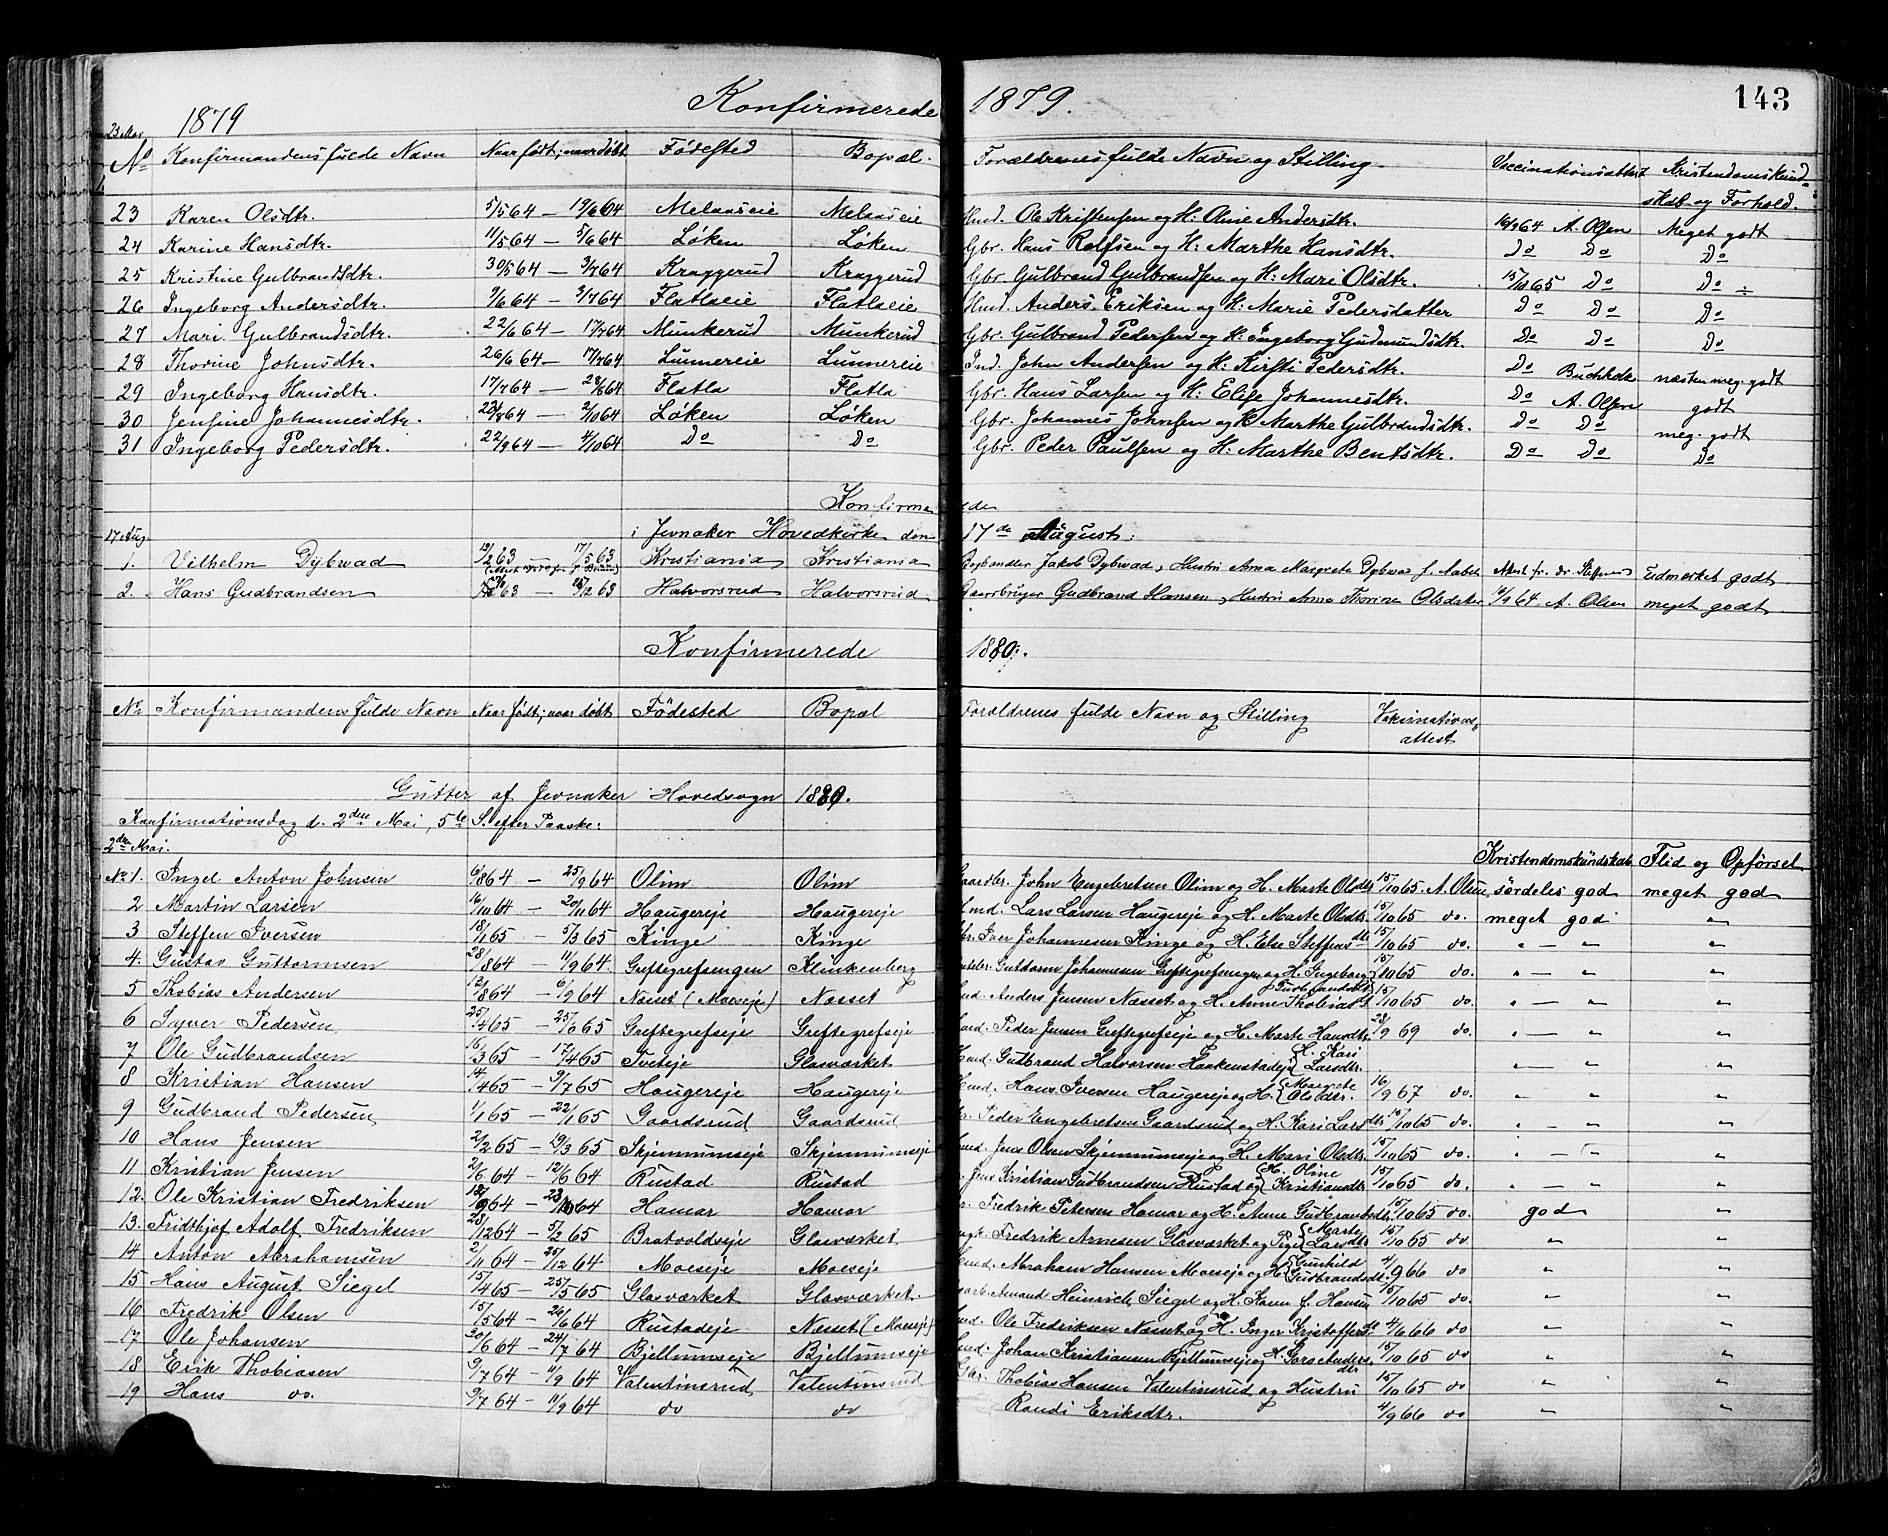 Konfirmerede 1879. 143
1879
23 Mar
No Konfirmandens fulde Navn Naar født; naar døbt Fødested Bopæl. Forældrenes fulde Navn og Stilling. Vaccinationsattest Kristendomskundskab og Forhold.
23 Karen Olsdtr. 5/5 64 — 19/6 64 Melaaseie Melaaseie Hmd. Ole Kristensen og H: Oline Andersdtr. 16/9 64 A. Olsen Meget godt
24 Karine Hansdtr. 11/5 64 — 5/6 64 Løken Løken Gbr. Hans Rolfsen og H: Marthe Hansdtr. Do Do Do
25 Kristine Gulbrandsdtr. 30/5 64 — 3/7 64 Kraggerud Kraggerud Gbr. Gulbrand Gulbrandsen og H: Mari Olsdtr. 15/10 65 Do Do ÷
26 Ingeborg Andersdtr. 9/6 64 — 3/7 64 Flatlaeie Flatlaeie Hmd. Anders Eriksen og H: Marie Pedersdatter Do Do Do
27 Mari Gulbrandsdtr. 22/6 64 — 17/7 64 Munkerud Munkerud Gbr. Gulbrand Pedersen og H: Ingeborg Gudmundsdtr. Do Do Do
28 Thorine Johnsdtr. 26/6 64 — 17/7 64 Lunnereie Lunnereie Ind. John Andersen og H: Kirsti Pedersdtr. Do Buchholz næsten meg. godt
29 Ingeborg Hansdtr. 17/7 64 — 28/8 64 Flatla Flatla Gbr. Hans Larsen og H: Elise Johannesdtr. Do A. Olsen godt
30 Jensine Johannesdtr. 28/8 64 — 2/10 64 Løken Løken Gbr. Johannes Johnsen og H: Marthe Gulbrandsdtr. Do Do meg. godt
31 Ingeborg Pedersdtr. 22/9 64 — 4/10 64 Do Do Gbr. Peder Paulsen og H: Marthe Bentsdtr. Do Do Do
Konfirmerede
17 Aug. i Jevnaker Hovedkirke den 17de August:
1. Vilhelm Dybwad 12/2 63 — 17/5 63 Kristiania Kristiania Boghandler Jakob Dybwad, Hustru Anna Margrete Dybwad f. Attest fr. dr. Steffens Udmerket godt
2. Hans Gudbrandsen 63 — /12 63 Halvorsrud Halvorsrud Gaardbruger Gudbrand Hansen, Hustru Anne Thorine Olsdatter /9 64 A. Olsen meget godt
Konfirmerede 1880.
No Konfirmandens fulde Navn Naar født; naar døbt Fødested Bopæl Forældrenes fulde Navn og Stilling Vakcinations attest
Gutter af Jevnaker Hovedsogn 1880.
Konfirmationsdag d. 2den Mai, 5te S. efter Paaske:
2den Mai. Kristendomskundskab Flid og Opførsel
No 1. Ingel Anton Johnsen 6/8 64 — 25/9 64 Olim Olim Gaardbr. John Engebretsen Olim og H. Marte Olsdtr. 15/10 65. A. Olsen særdeles god meget god
2 Martin Larsen 16/10 64 — 20/11 64 Haugereje Haugereje Hmd. Lars Larsen Haugereje og H. Marte Olsdtr. 15/10 65 do. meget god "
3 Steffen Iversen 18/1 65 — 5/3 65 Kinge Kinge Gbr. Iver Johannesen Kinge og H. Else Steffensdtr. 15/10 65 do. " — " "
4. Gustav Guttormsen 28/8 64 — 11/9 64. Greftegrefsengen Klinkenberg Guttorm Johannesen Greftegrefsengen og H. Ingeborg Gudbrandsdtr. 15/10 65 do. " — " "
5 Thobias Andersen 12/8 64 — 6/9 64 Næsset (Moeseje) Næsset Hmd. Anders Jensen Næsset og H. Anne Thobiasdtr. 15/10 65 do. " — " "
6 Syver Pedersen 25/4 65 — 25/6 65 Greftegrefseje Greftegrefseje Hmd. Peder Jensen Greftegrefseje og H. Marte Hansdtr. 28/9 69 do. " — " "
7 Ole Gudbrandsen 16/3 65 — 17/4 65 Tveteje Glasværket Hmd. Gudbrand Halvorsen Haakenstadeje H. Kari Larsdtr. " — " "
8 Kristian Hansen 14/4 65 — 9/7 65 Haugereje Haugereje Hmd. Hans Iversen Haugereje og H. Margrete Olsdtr. 16/9 67 do. " " "
9 Gudbrand Pedersen 1/1 65 — 22/1 65 Gaardsrud Gaardsrud Gbr. Peder Engebretsen Gaardsrud og H. Kari Larsdtr. 15/10 65 do. " — " "
10 Hans Jensen 2/2 65 — 19/3 65 Skjennumseje Skjennumseje Hmd. Jens Olsen Skjennumseje og H. Mari Olsdtr. 15/10 65 do. " — " "
11 Kristian Jensen 2/6 64 — 12/6 64 Rustad Rustad Jens Kristian Gudbrandsen Rustad og H. Oline Kristiansdtr. 15/10 65 do. " — " "
12. Ole Kristian Fredriksen 12/9 64 — 23/10 64 Hamar Hamar Fredrik Petersen Hamar og H. Anne Gudbrandsdtr. 15/10 65 do. god "
13. Fridthjof Adolf Fredriksen 28/12 64 — 5/2 65 Bratvoldseje Glasværket Fredrik Arnesen Glasværket og Pige Marte Larsdtr. 15/10 65 do " "
14 Anton Abrahamsen 2/11 64 — 25/12 64 Moeseje Moeseje Hmd. Abraham Hansen Moeseje og H. Gunhild Gudbrandsdtr. 4/9 66 do " "
15 Hans August Siegel 15/4 65 — 25/5 65 Glasværket Glasværket. Amand Heinrich Siegel og H. Karen f. Hansen 15/10 65 do. " "
16 Fredrik Olsen 15/5 64 — 26/6 64 Rustadeje Næsset (Moeseje) Hmd. Ole Fredriksen Næsset og H. Inger Kristoffersdtr. 4/6 66 do " "
17 Ole Johansen 20/6 64 — 24/7 64 Bjellumseje Bjellumseje Hmd. Johan Kristiansen Bjellumseje og H. Goro Andersdtr. 15/10 65 do " "
18 Erik Thobiasen 9/7 64 — 11/9 64 Valentinsrud Valentinsrud Gbr. Thobias Hansen Valentinsrud og Hustru 15/10 65 do " "
19 Hans do. 9/7 64 — 11/9 64 do do Randi Eriksdtr. 4/9 66 do " "